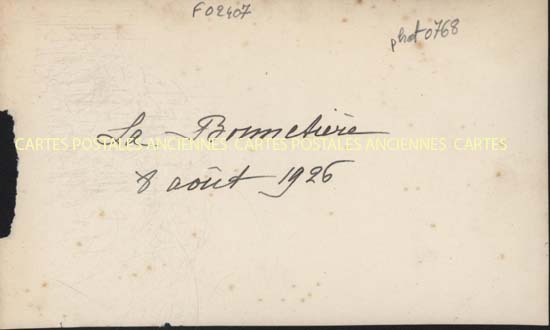 F02407
phot0768
La Bonnetière
CARTES POSTALES ANCIENNES CARTES POSTALES ANCIENNES CARTES
8 août 1926